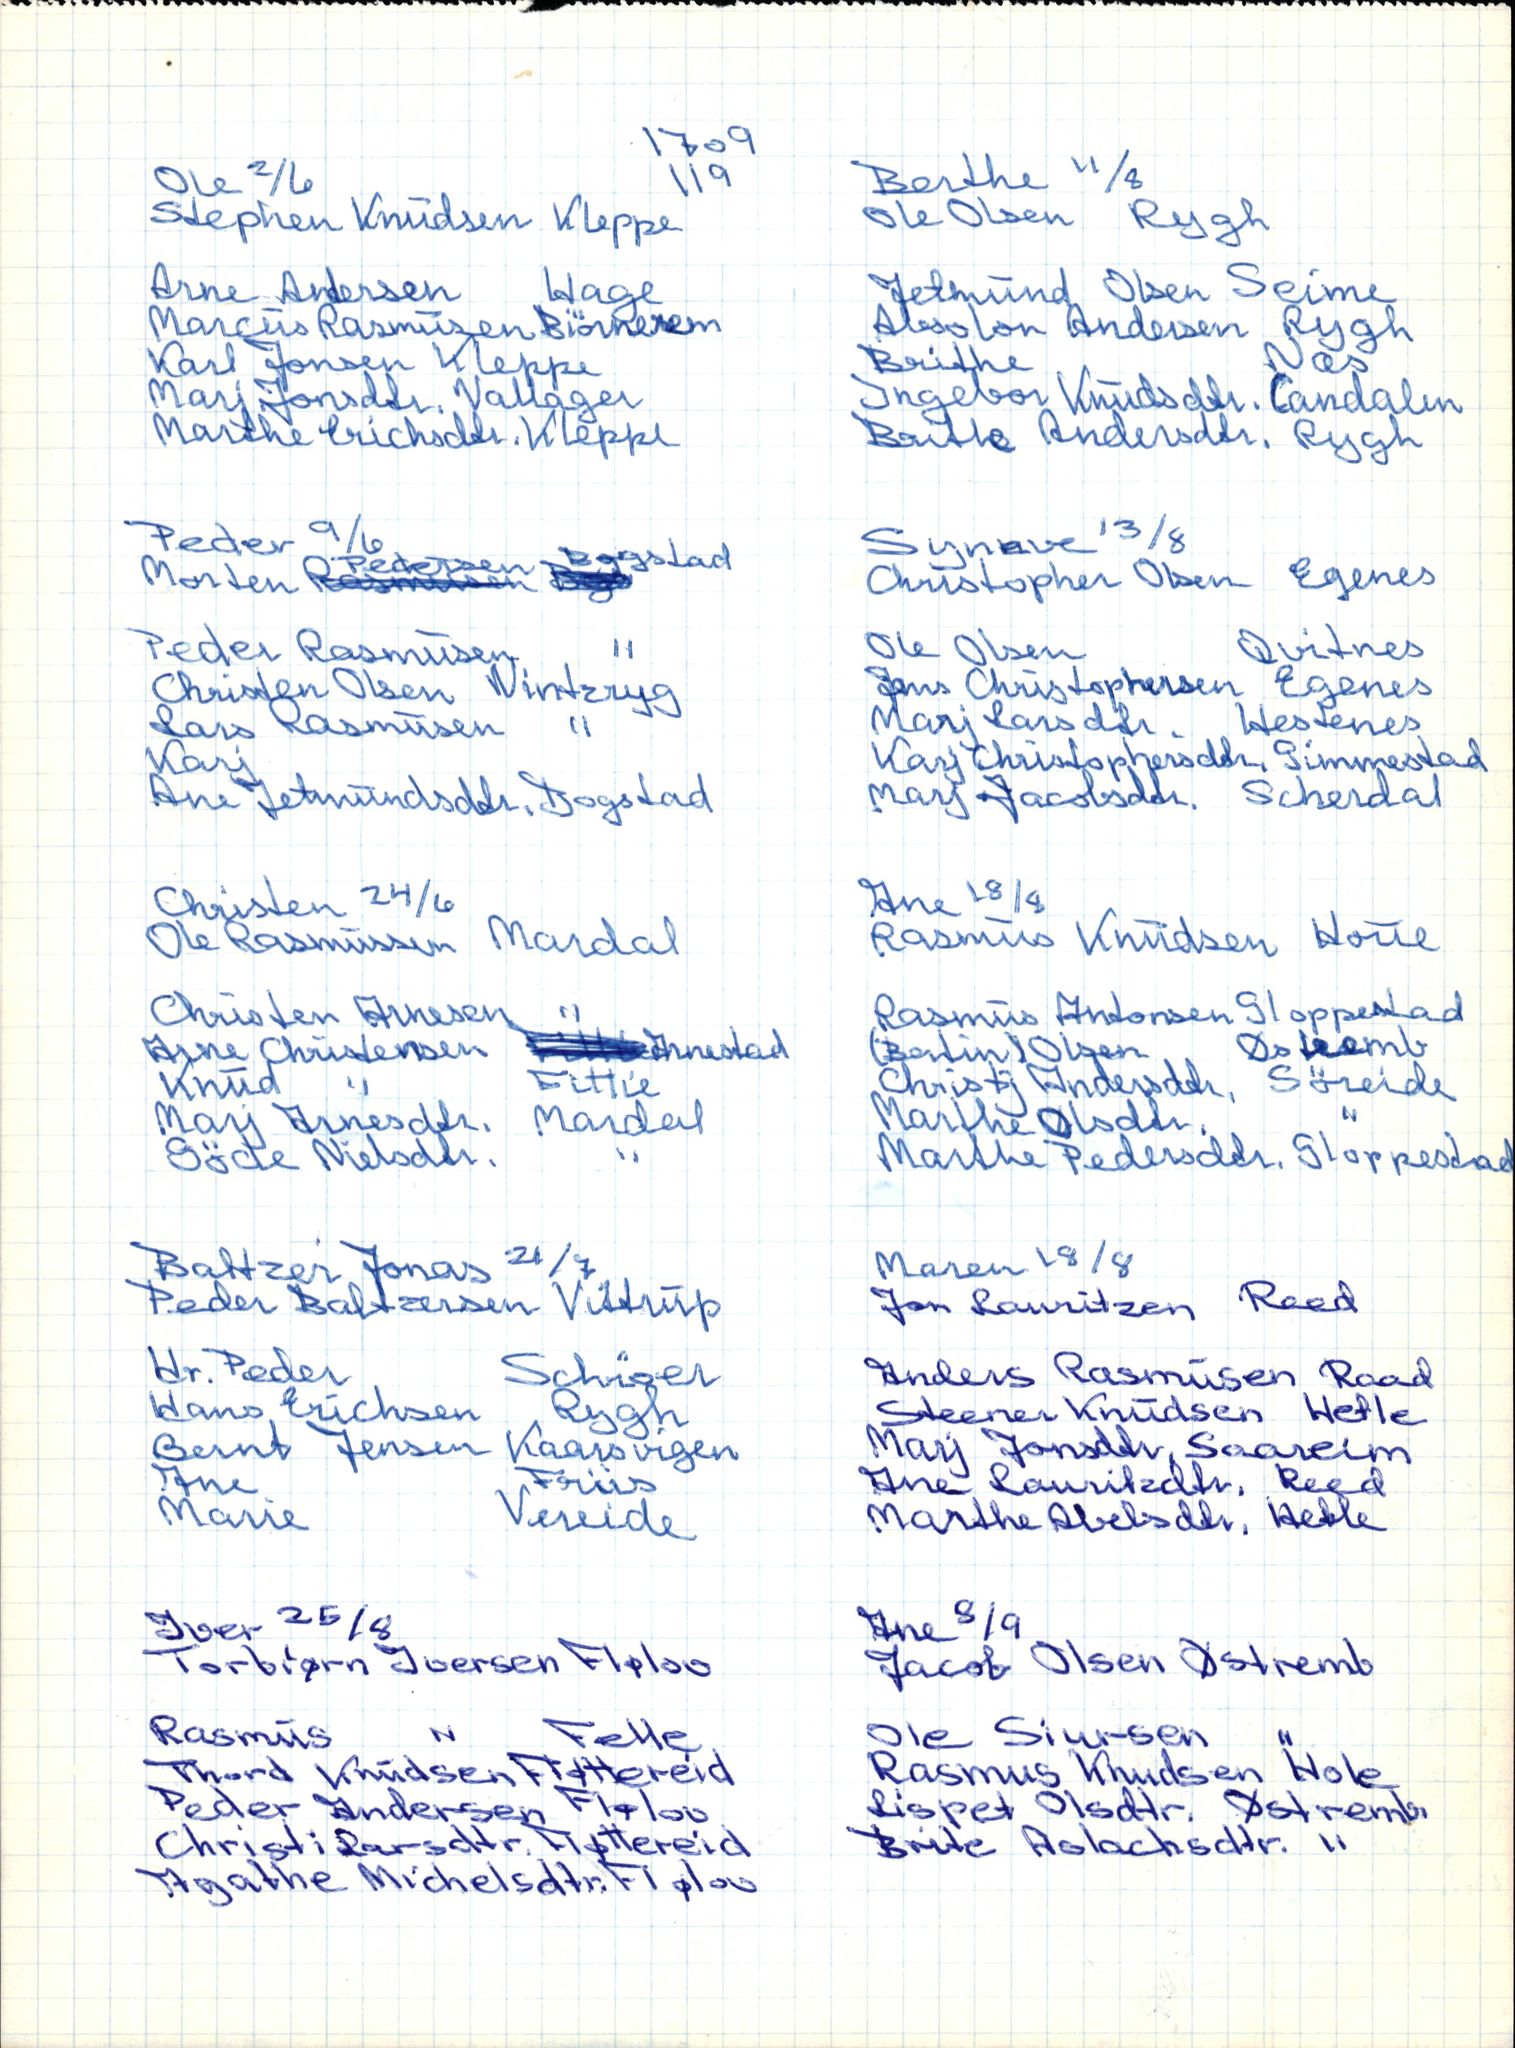 1709
119
Ole 2/6
Stephen Knüdsen Kleppe
Arne Andersen Hage
Marcüs Rasmüsen Biörnerem
Karl Jonsen Kleppe
Marj Jonsdtr. Vallager
Marthe Erichsdtr. Kleppe
Peder 9/6
Morten Pedersen Bogstad
Peder Rasmüsen "
Christen Olsen Nintzryg
Lars Rasmüsen "
Karj
Ane Jetmündsdtr. Bogstad
Christen 24/6
Ole Rasmüssen Mardal
Christen Arnesen "
Arne Christensen Arnestad
Knüd " Fittie
Marj Arnesdtr. Mardal
Göcte Nielsdtr. "
Baltzer Jonas 21/7
Peder Baltzersen Vittrüp
Hr. Peder Schiöer
Hans Erichsen Rygh
Bernt Jensen Kaarsvigen
Ane Friis
Marie Vereide
Iver 25/8
Torbiørn Iversen Flølov
Rasmüs " Felle
Thord Knüdsen Fløttereid
Peder Andersen Flølov
Christi Larsdtr. Fløttereid
Agathe Michelsdtr. Flølov
Berthe 11/8
Ole Olsen Rygh
Jetmünd Olsen Seime
Absolon Andersen Rygh
Brithe Næs
Ingebor Knüdsdtr. Candalen
Brithe Andersdtr. Rygh
Synneve 13/8
Christopher Olsen Egenes
Ole Olsen Qvitnes
Jens Christophersen Egenes
Marj Larsdtr. Hestenes
Karj Christophersdtr. Gimmestad
Marj Jacobsdtr. Scherdal
Ane 18/8
Rasmüs Knüdsen Hoüe
Rasmüs Antonsen Gloppestad
(Bertin) Olsen Østremb
Christj Andersdtr. Söreide
Marthe Olsdtr. "
Marthe Pedersdtr. Gloppestad
Maren 18/8
Jon Lauritzen Reed
Anders Rasmüsen Raad
Steener Knüdsen Hetle
Marj Jonsdtr. Saareim
Ane Lauritzdtr. Reed
Marthe Abelsdtr. Hetle
Ane 8/9
Jacob Olsen Østremb
Ole Siursen "
Rasmus Knudsen Hole
Lispet Olsdtr. Østremb
Brite Aslachsdtr. "